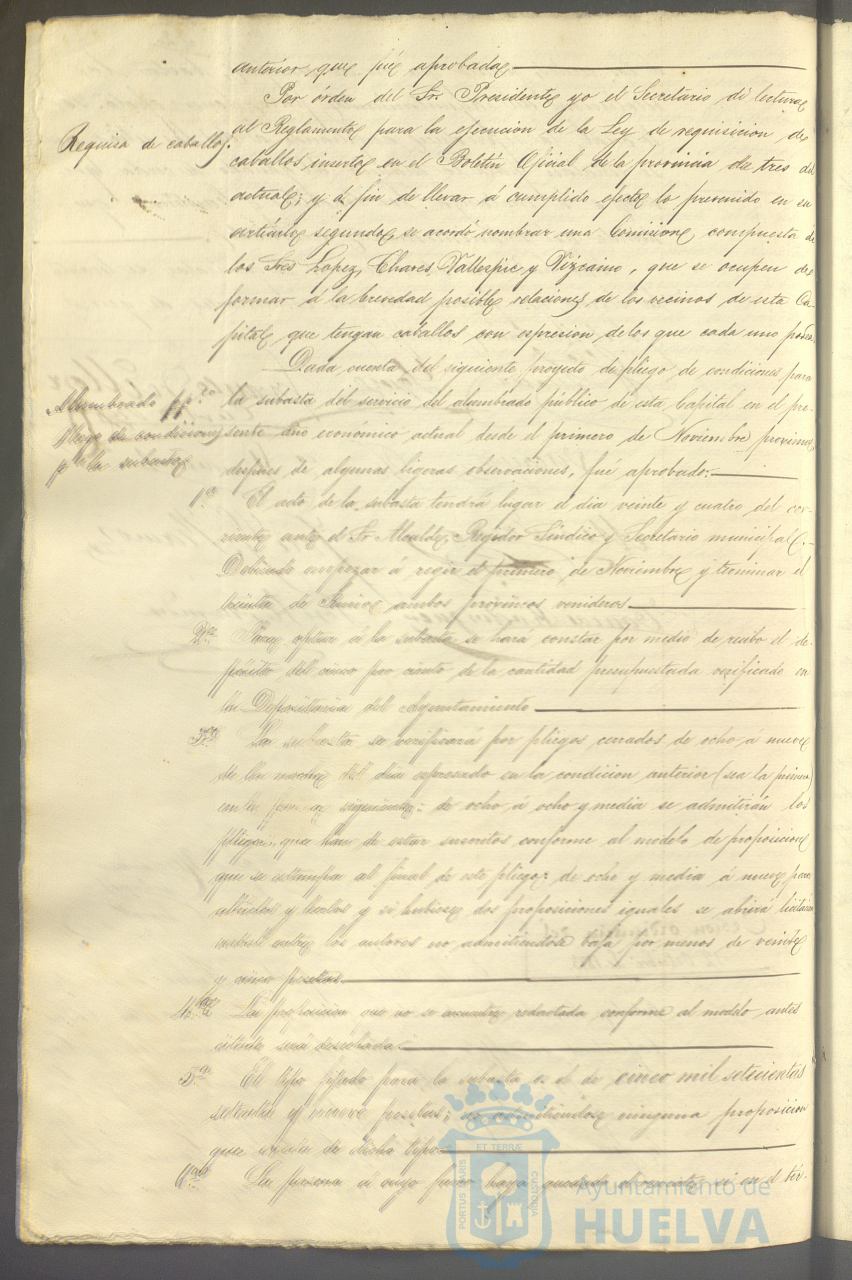 anterior que fué aprobada
Por órden del Sr. Presidente yo el Secretario di lectura
Requisa de caballos.
al Reglamento para la ejecucion de la Ley de requisicion de
caballos inserto en el Boletin Oficial de la provincia del tres del
actual; y á fin de llevar á cumplido efecto lo prevenido en su
artículo segundo, se acordó nombrar una Comision compuesta de
los Sres Lopez, Chaves, Vallespin y Vizcaino, que se ocupen de
formar á la brevedad posible relaciones de los vecinos de esta Ca-
pital que tengan caballos con espresion de los que cada uno posea.
Dada cuenta del siguiente proyecto de pliego de condiciones para
Alumbrado
la subasta del servicio del alumbrado público de esta Capital en el pre-
pliego de condiciones
sente año económico actual desde el primero de Noviembre proximo,
pª la subasta
despues de algunas ligeras observaciones, fué aprobado:
1.ª El acto de la subasta tendrá lugar el dia veinte y cuatro del cor-
riente ante el Sr Alcalde, Regidor Síndico y Secretario municipal.
Debiendo empezar á regir el primero de Noviembre y terminar el
treinta de Junio ambos proximos venideros
2.ª Para optar á la subasta se hará constar por medio de recibo el de-
pósito del cinco por ciento de la cantidad presupuestada verificado en
la Depositaria del Ayuntamiento
3.ª La subasta se verificará por pliegos cerrados de ocho á nueve
de la noche del dia espresado en la condicion anterior (sea la primera)
en la forma siguiente: de ocho á ocho y media se admitirán los
pliegos que han de estar suscritos conforme al modelo de proposicion
que se estampa al final de este pliego; de ocho y media á nueve para
abrirlos y leerlos y si hubiese dos proposiciones iguales se abrirá licitacion
entre los autores no admitiéndose baja por menos de veinte
y cinco pesetas
4.ª La proposicion que no se encuentre redactada conforme al modelo antes
citado será desechada
5.ª El tipo fijado para la subasta es el de cinco mil setecientas
setenta y nueve pesetas; no admitiéndose ninguna proposicion
que esceda de dicho tipo
6.ª La persona á cuyo favor haya quedado el remate, si en el tér-
PORTUS MARIS ET TERRÆ CUSTODIA
Ayuntamiento de
HUELVA